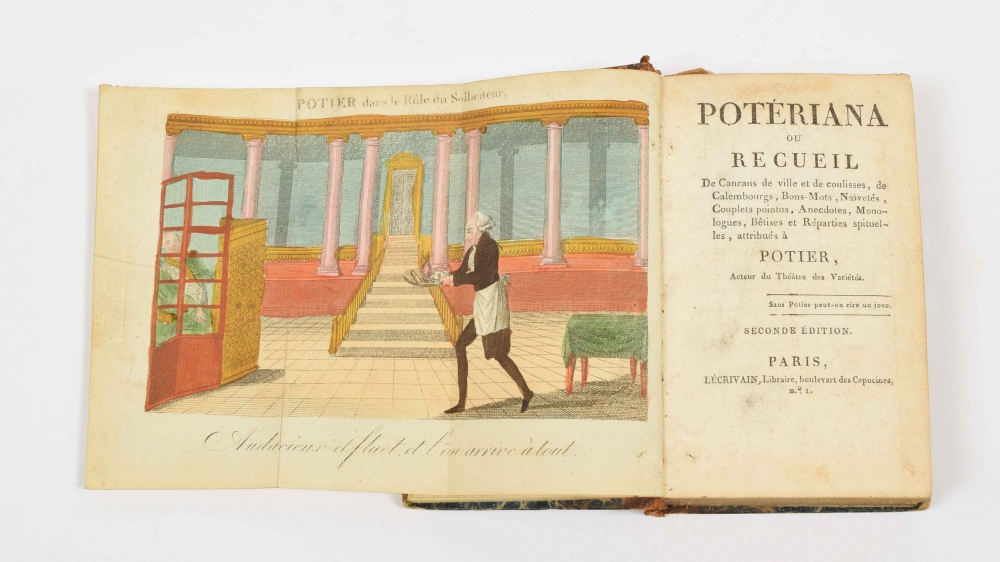 POTIER dans le Rôle du Solliciteur,
Audacieux et fluet, et l'on arrive à tout.
POTÉRIANA
OU
RECUEIL
De Cancans de ville et de coulisses, de
Calembourgs, Bons-Mots, Naivetés,
Couplets pointus, Anecdotes, Mono-
logues, Bêtises et Réparties spituel-
les, attribués à
POTIER,
Acteur du Théâtre des Variétés.
Sans Potier peut-on rire un jour.
SECONDE ÉDITION.
PARIS,
LÉCRIVAIN, Libraire, boulevart des Capucines,
n.º 1.